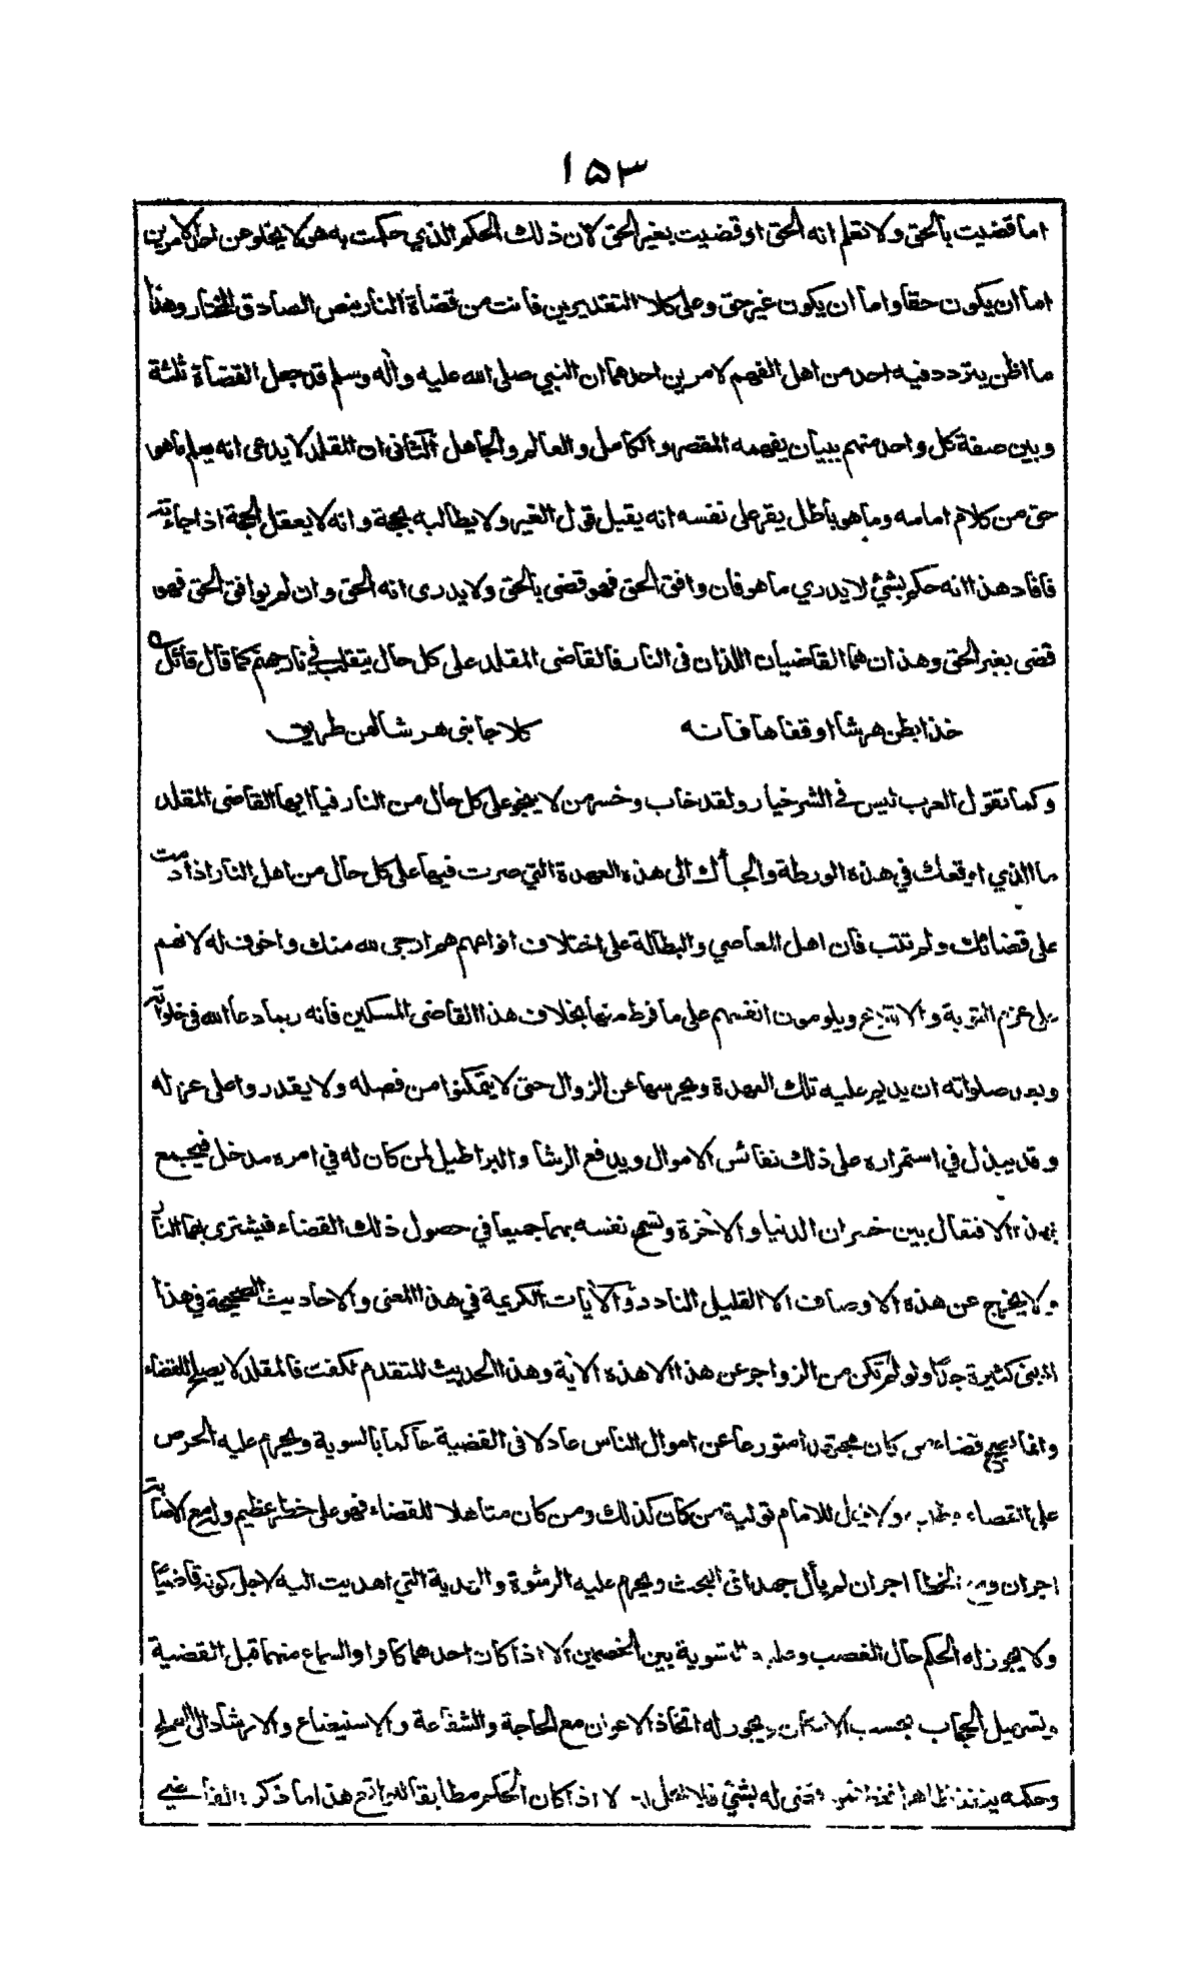 ١٥٣
اما قضيت بالحق ولا تعلم انه الحق او قضيت بغير الحق لان ذلك الحكم الذي حكمت به هو لا يخلو عن احد الامرين
اما ان يكون حقا واما ان يكون غير حق وعلى كلا التقديرين فانت من قضاة النار بنص الصادق المختار وهذا
ما اظن يتردد فيه احد من اهل الفهم لامرين احدهما ان النبي صلى الله عليه وآله وسلم قد جعل القضاة ثلثة
وبين صفة كل واحد منهم ببيان يفهمه المقصر والكامل والعالم والجاهل الثاني ان المقلد لا يدعى انه يعلم ما هو
حق من كلام امامه وما هو باطل بل يقر على نفسه انه يقبل قول الغير ولا يطالبه بحجة وانه لا يعقل الحجة اذا جاءته
فافاد هذا انه حكم بشيء لا يدري ما هو فان وافق الحق فهو قضى بالحق ولا يدرى انه الحق وان لم يوافق الحق فهو
قضى بغير الحق وهذان هما القاضيان اللذان فى النار فالقاضى المقلد على كل حال يتقلب في نار جهنم كما قال قائل
خذا بطن هرشا او قفاها فانه كلا جانبى هرشا لهن طريق
وكما تقول العرب ليس في الشر خيار ولقد خاب وخسر من لا ينجو على كل حال من النار فيا ايها القاضى المقلد
ما الذي اوقعك في هذه الورطة والجأك الى هذه العهدة التي صرت فيها على كل حال من اهل النار اذا دمت
على قضائك ولم تتب فان اهل المعاصي والبطالة على اختلاف انواعهم هم ارجى لله منك واخوف له لانهم
على عزم التوبة والاقلاع ويلومون انفسهم على ما فرط منها بخلاف هذا القاضى المسكين فانه ربما دعا الله فى خلواته
وبعد صلواته ان يديم عليه تلك العهدة ويحرسها عن الزوال حتى لا يتمكنوا من فصله ولا يقدروا على عزله
وقد يبذل في استمراره على ذلك نفائس الاموال ويدفع الرشا والبراطيل لمن كان له في امره مدخل فيجمع
بهذا الافتعال بين خسران الدنيا والآخرة وتسمح نفسه بهما جميعا في حصول ذلك القضاء فيشترى بهما النار
ولا يخرج عن هذه الاوصاف الا القليل النادر والآيات الكريمة في هذا المعنى والاحاديث الصحيحة في هذا
المعنى كثيرة جدًا ولو لم تكن من الزواجر عن هذا الا هذه الآية وهذا الحديث المتقدم لكفت فالمقلد لا يصلح للقضاء
وانما يصح قضاء من كان مجتهدا متورعا عن اموال الناس عادلا فى القضية حاكما بالسوية ويحرم عليه الحرص
على القضاء وطلبه ولا يحل للامام تولية من كان كذلك ومن كان متاهلا للقضاء فهو على خطر عظيم وله مع الاصابة
اجران ومع الخطا اجر ان لم يأل جهدا فى البحث ويحرم عليه الرشوة والهدية التي اهديت اليه لاجل كونه قاضيًا
ولا يجوز له الحكم حال الغضب وعليه التسوية بين الخصمين الا اذا كان احدهما كافرا والسماع منهما قبل القضية
وتسهيل الحجاب بحسب الامكان ويجوز له اتخاذ الاعوان مع الحاجة والشفاعة والاستيضاع والارشاد الى الصلح
وحكمه ينفذ ظاهرا فقط فمن قضى له بشيء فلا يحل له الا اذا كان الحكم مطابقا للواقع هذا ما ذكر القاضي